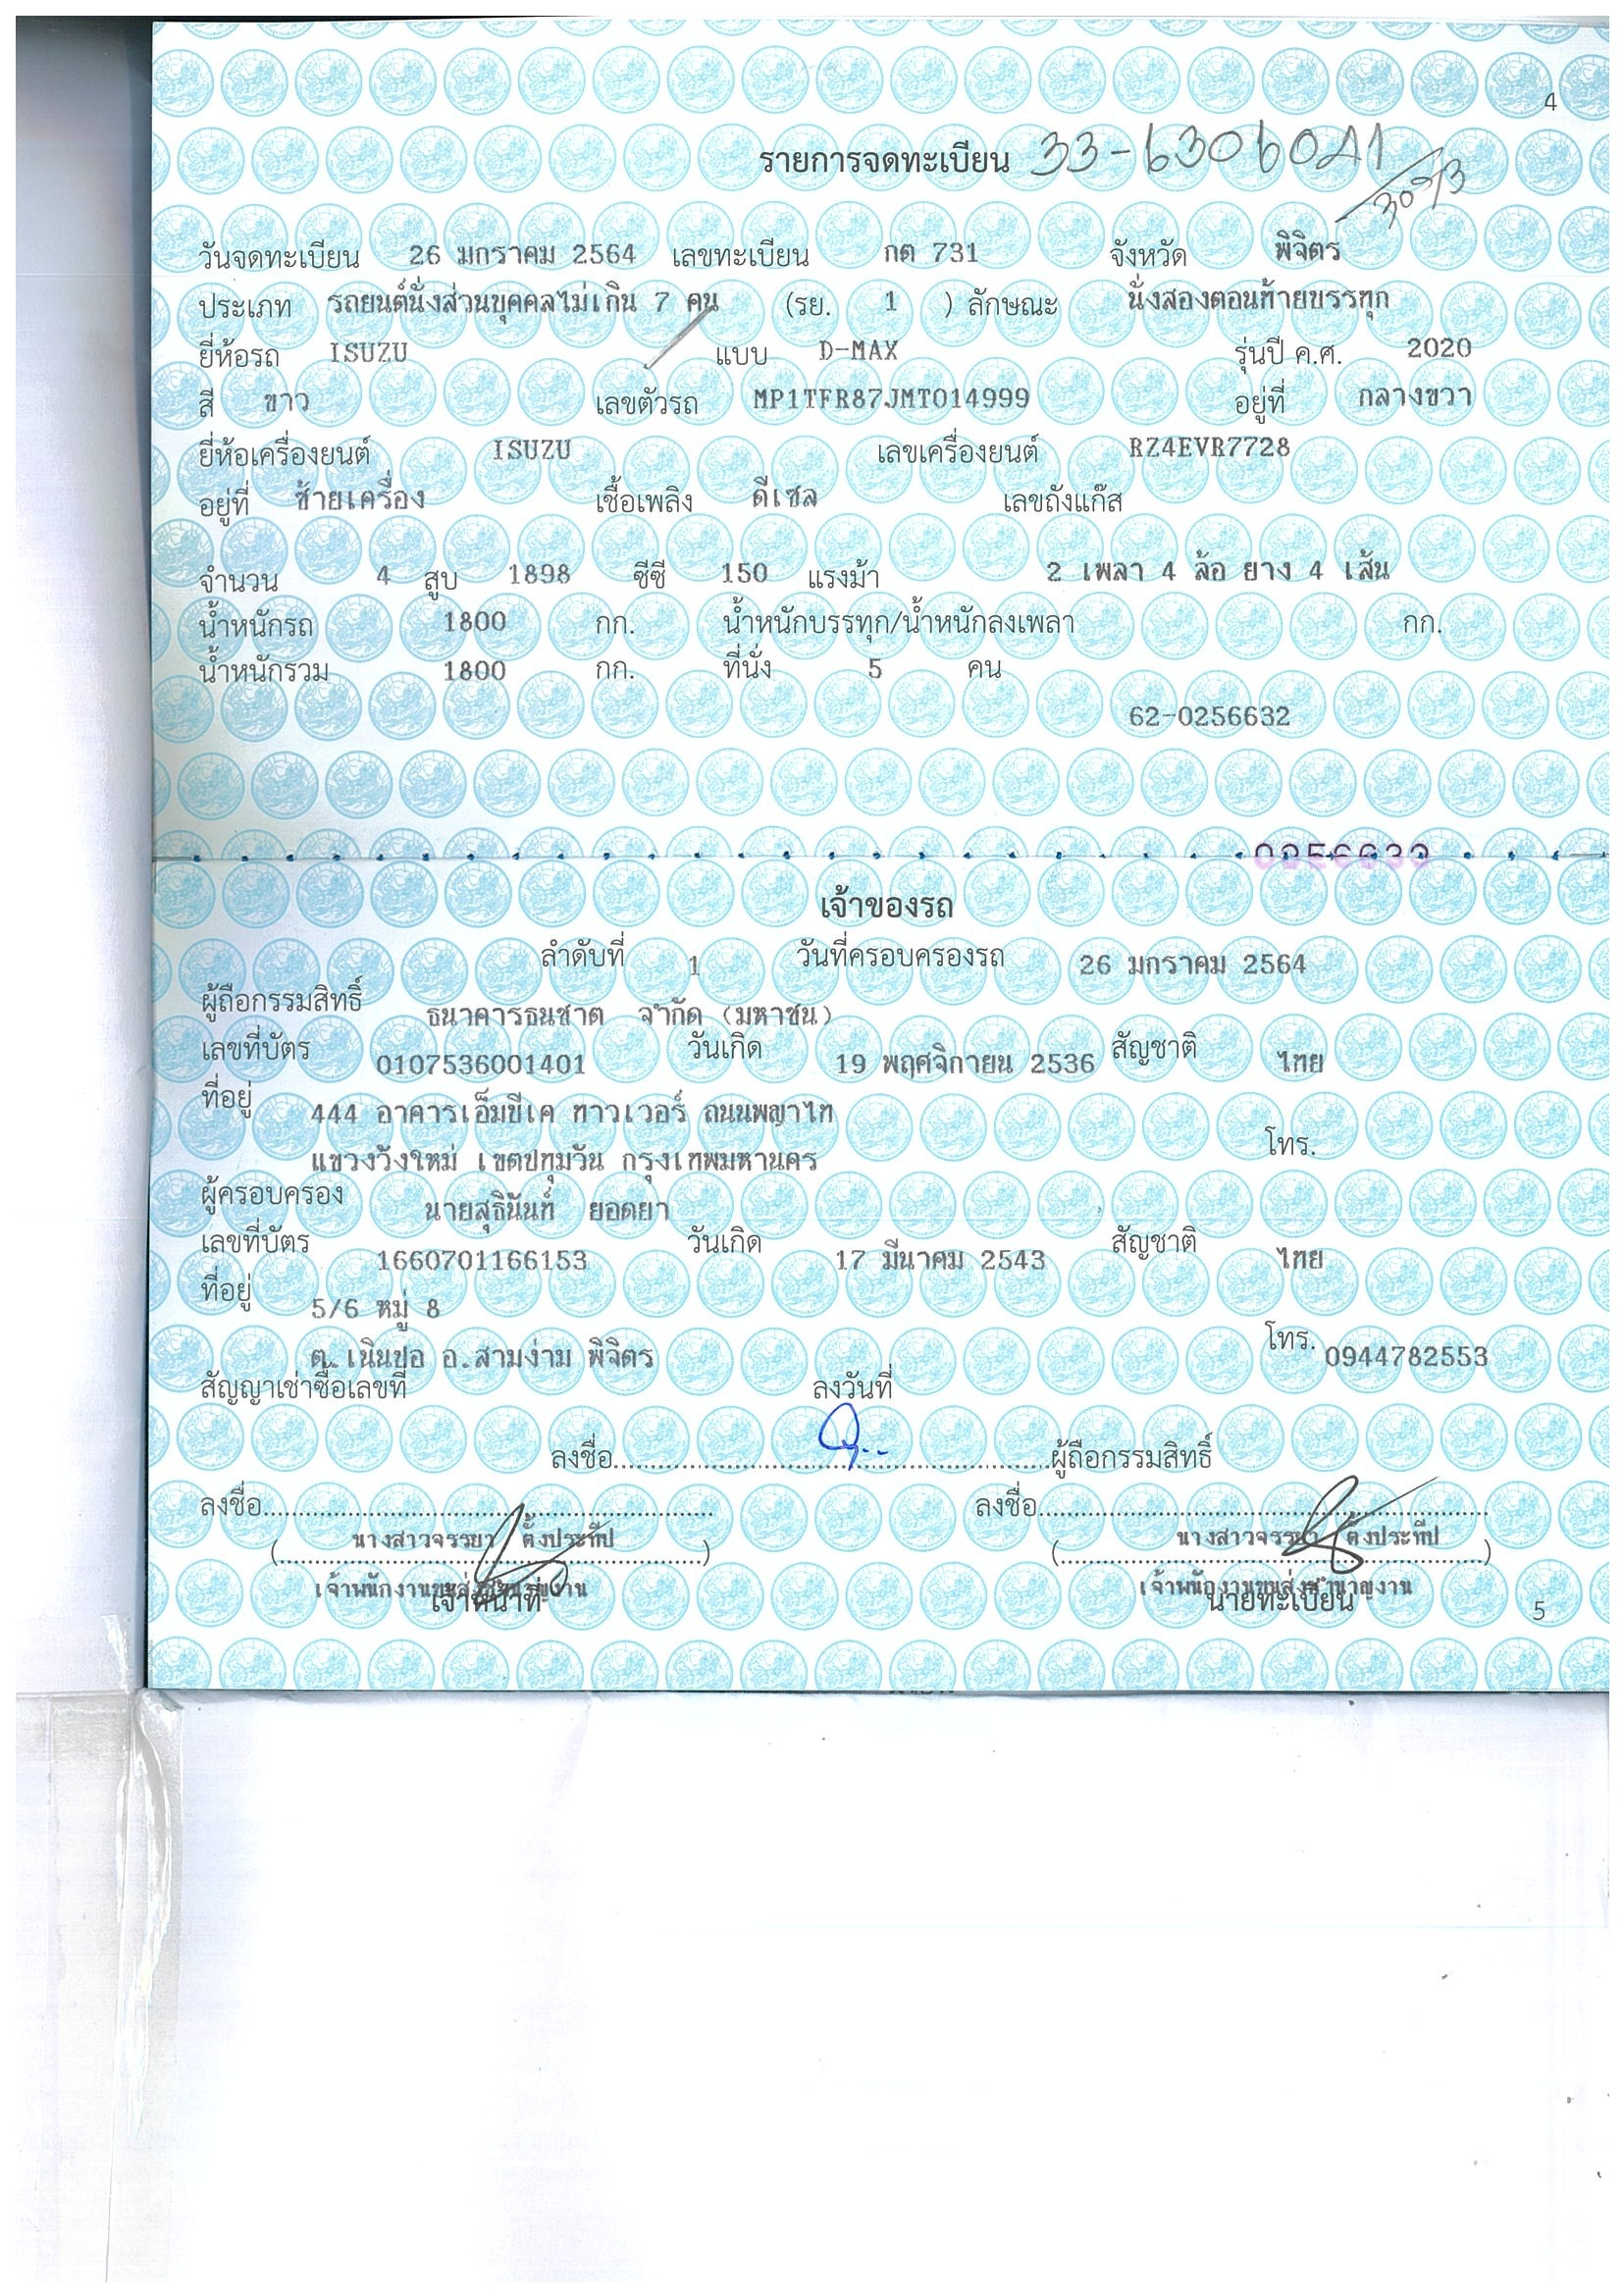 4
รายการจดทะเบียน 33-6306041
30273
วันจดทะเบียน 26 มกราคม 2564 เลขทะเบียน กต 731 จังหวัด พิจิตร
ประเภท รถยนต์นั่งส่วนบุคคลไม่เกิน 7 คน (รย. 1 ) ลักษณะ นั่งสองตอนท้ายบรรทุก
ยี่ห้อรถ ISUZU แบบ D-MAX รุ่นปี ค.ศ. 2020
สี ขาว เลขตัวรถ MP1TFR87JMT014999 อยู่ที่ กลางขวา
ยี่ห้อเครื่องยนต์ ISUZU เลขเครื่องยนต์ RZ4EVR7728
อยู่ที่ ซ้ายเครื่อง เชื้อเพลิง ดีเซล เลขถังแก๊ส
จำนวน 4 สูบ 1898 ซีซี 150 แรงม้า 2 เพลา 4 ล้อ ยาง 4 เส้น
น้ำหนักรถ 1800 กก. น้ำหนักบรรทุก/น้ำหนักลงเพลา กก.
น้ำหนักรวม 1800 กก. ที่นั่ง 5 คน
62-0256632
เจ้าของรถ
ลำดับที่ 1 วันที่ครอบครองรถ 26 มกราคม 2564
ผู้ถือกรรมสิทธิ์ ธนาคารธนชาต จำกัด (มหาชน)
เลขที่บัตร 0107536001401 วันเกิด 19 พฤศจิกายน 2536 สัญชาติ ไทย
ที่อยู่ 444 อาคารเอ็มบีเค ทาวเวอร์ ถนนพญาไท
แขวงวังใหม่ เขตปทุมวัน กรุงเทพมหานคร โทร.
ผู้ครอบครอง นายสุธินันท์ ยอดยา
เลขที่บัตร 1660701166153 วันเกิด 17 มีนาคม 2543 สัญชาติ ไทย
ที่อยู่ 5/6 หมู่ 8
ต.เนินปอ อ.สามง่าม พิจิตร โทร. 0944782553
สัญญาเช่าซื้อเลขที่ ลงวันที่
ลงชื่อ ผู้ถือกรรมสิทธิ์
ลงชื่อ ลงชื่อ
(นางสาวจรรยา ตั้งประทีป) (นางสาวจรรยา ตั้งประทีป)
เจ้าพนักงานขนส่งชำนาญงาน เจ้าพนักงานขนส่งชำนาญงาน
เจ้าหน้าที่ นายทะเบียน 5